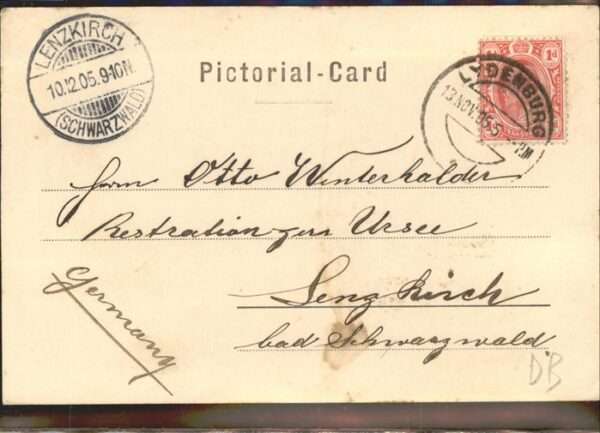 LENZKIRCH
10.12.05.9-10N.
(SCHWARZWALD)
Pictorial-Card
1d
LYDENBURG
13 NOV. 05
Herrn Otto Winterhalder
Restration zum Ursee
Lenzkirch
bad Schwarzwald
Germany
DB